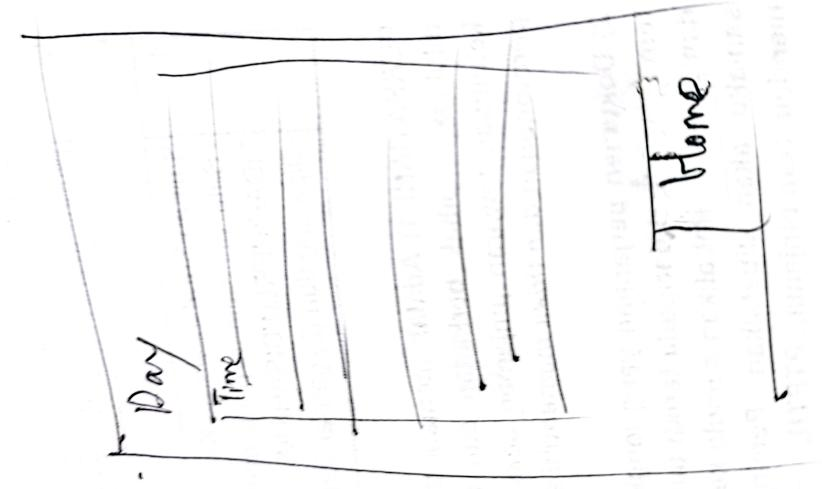 Day
Time
Home